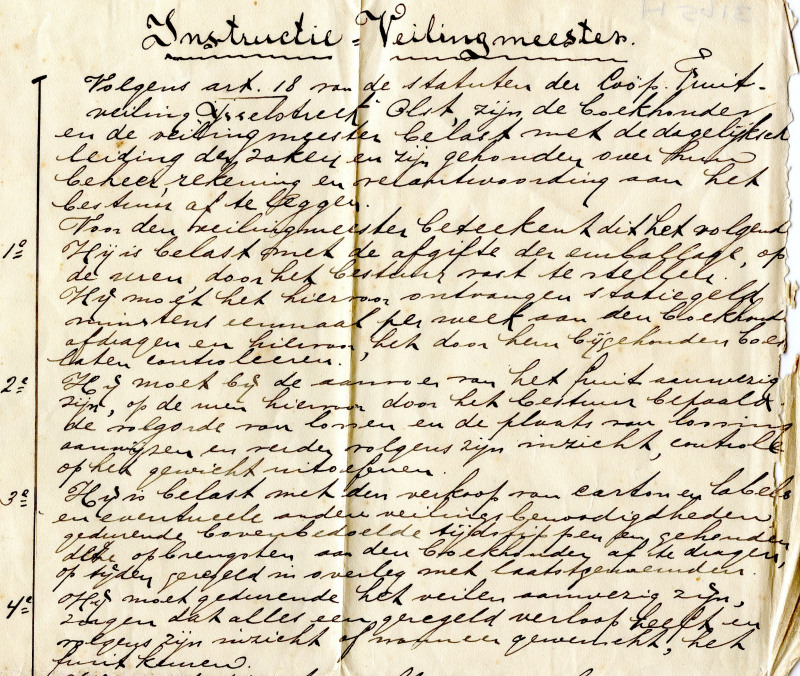 Instructie-Veilingmeester.
Volgens art. 18 van de statuten der Coöp. Fruit-
veiling "IJsselstreek" Olst, zijn de boekhouder
en de veilingmeester belast met de dagelijksch
leiding der zaken en zijn gehouden over hun
beheer, rekening en verantwoording aan het
bestuur af te leggen.
Voor den veilingmeester beteekent dit het volgend
1e Hij is belast met de afgifte der emballage, op
de uren door het bestuur vast te stellen.
Hij moet het hiervoor ontvangen statiegeld
minstens eenmaal per week aan den boekhoud
afdragen en hiervoor, het door hem bijgehouden boek
laten controleeren.
2e Hij moet bij de aanvoer van het fruit aanwezig
zijn, op de uren hiervoor door het bestuur bepaald.
de volgorde van lossen en de plaats van lossing
aanwijzen en verder volgens zijn inzicht, controle
op het gewicht uitoefenen.
3e Hij is belast met den verkoop van carton en labels
en eventueele andere veilingsbenoodigdheden
gedurende bovenbedoelde tijdstippen en gehouden
deze opbrengsten aan den boekhouder af te dragen,
op tijden geregeld in overleg met laatstgenoemden.
4e Hij moet gedurende het veilen aanwezig zijn,
zorgen dat alles een geregeld verloop heeft en
volgens zijn inzicht of wanneer gewenscht, het
fruit keuren.